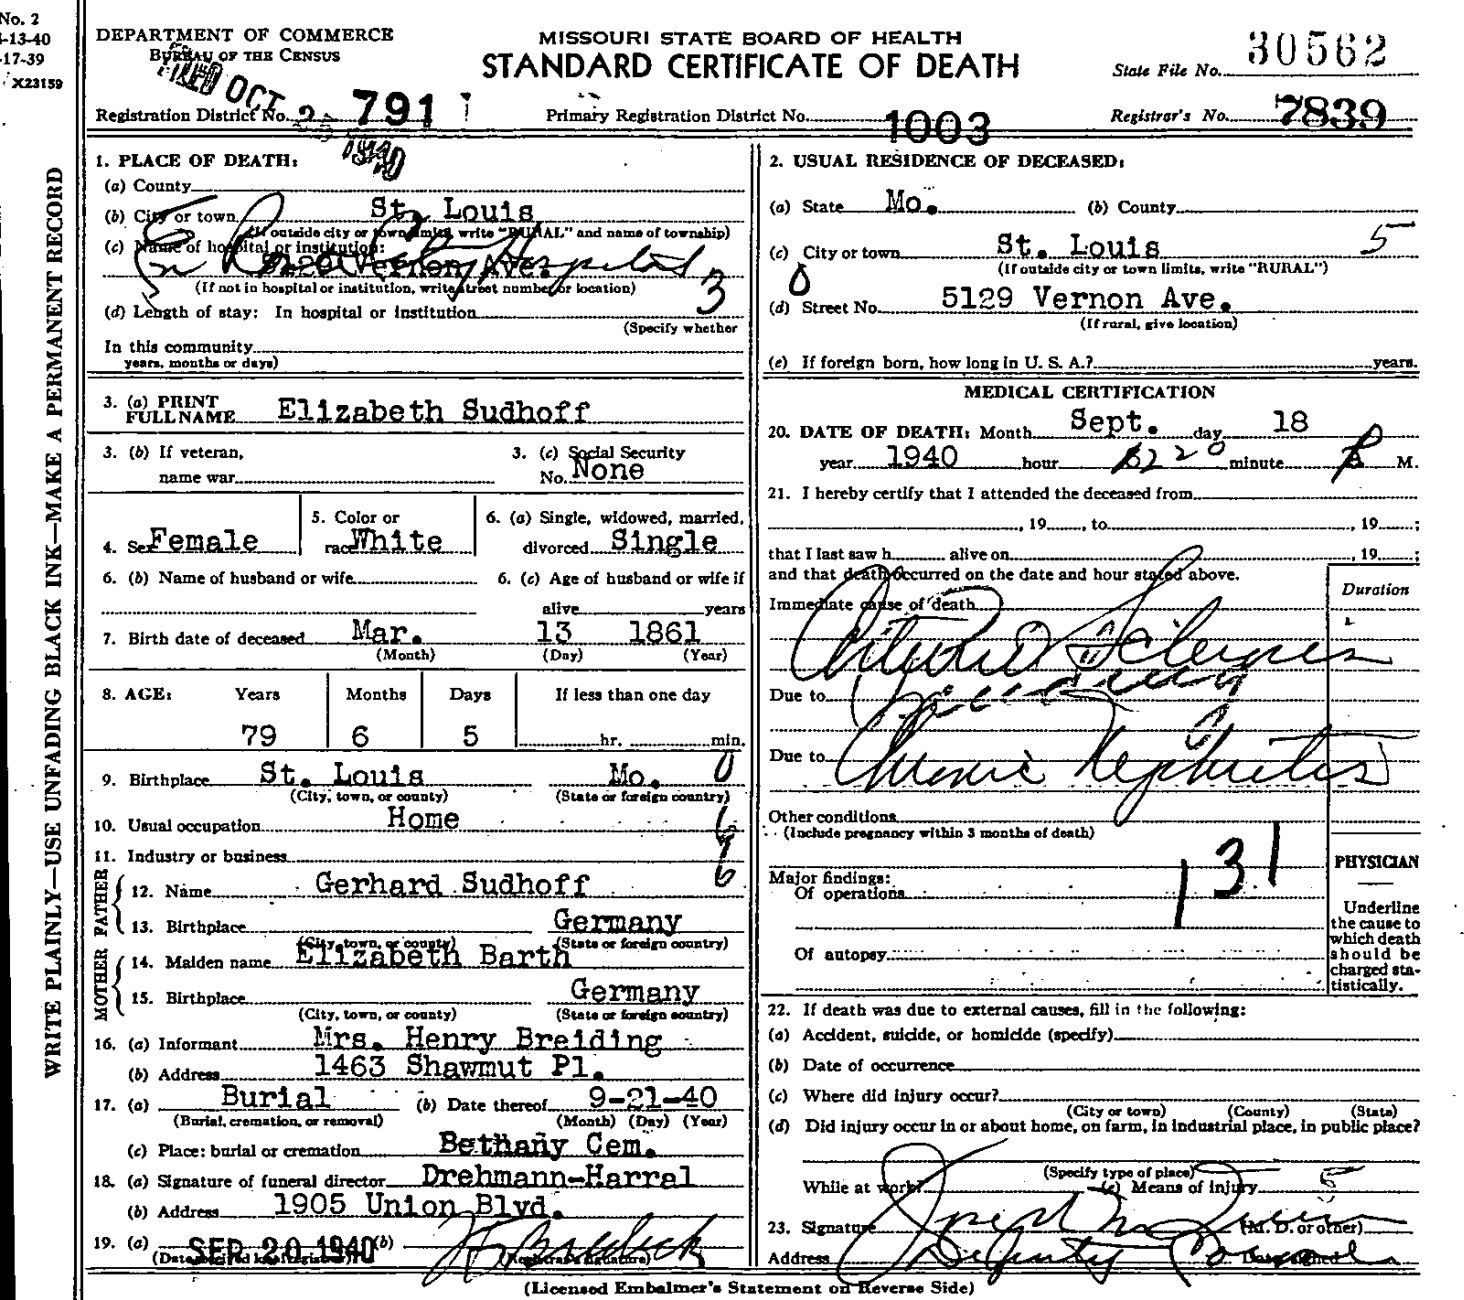 No. 2
-13-40
-17-39
X23159
WRITE PLAINLY—USE UNFADING BLACK INK—MAKE A PERMANENT RECORD
DEPARTMENT OF COMMERCE
BUREAU OF THE CENSUS
MISSOURI STATE BOARD OF HEALTH
STANDARD CERTIFICATE OF DEATH
State File No. 30562
OCT 25 1940
Registration District No. 791
Primary Registration District No. 1003
Registrar's No. 7839
1. PLACE OF DEATH:
(a) County
(b) City or town St. Louis
(If outside city or town limits, write "RURAL" and name of township)
(c) Name of hospital or institution:
Vernon Ave. Hospital
(If not in hospital or institution, write street number or location)
3
(d) Length of stay: In hospital or institution
(Specify whether
In this community
years, months or days)
2. USUAL RESIDENCE OF DECEASED:
(a) State Mo. (b) County
(c) City or town St. Louis 5
(If outside city or town limits, write "RURAL")
0
(d) Street No. 5129 Vernon Ave.
(If rural, give location)
(e) If foreign born, how long in U. S. A.? years.
3. (a) PRINT FULL NAME Elizabeth Sudhoff
3. (b) If veteran, name war
3. (c) Social Security No. None
4. Sex Female
5. Color or race White
6. (a) Single, widowed, married, divorced Single
6. (b) Name of husband or wife
6. (c) Age of husband or wife if alive years
7. Birth date of deceased Mar. 13 1861
(Month) (Day) (Year)
8. AGE: Years Months Days If less than one day
79 6 5 hr. min.
9. Birthplace St. Louis Mo. 0
(City, town, or county) (State or foreign country)
10. Usual occupation Home
11. Industry or business
FATHER
12. Name Gerhard Sudhoff
13. Birthplace Germany
(City, town, or county) (State or foreign country)
MOTHER
14. Maiden name Elizabeth Barth
15. Birthplace Germany
(City, town, or county) (State or foreign country)
16. (a) Informant Mrs. Henry Breiding
(b) Address 1463 Shawmut Pl.
17. (a) Burial (b) Date thereof 9-21-40
(Burial, cremation, or removal) (Month) (Day) (Year)
(c) Place: burial or cremation Bethany Cem.
18. (a) Signature of funeral director Drehmann-Harral
(b) Address 1905 Union Blvd.
19. (a) SEP 20 1940 (b)
(Registrar's signature)
MEDICAL CERTIFICATION
20. DATE OF DEATH: Month Sept. day 18
year 1940 hour minute P M.
21. I hereby certify that I attended the deceased from
, 19 , to , 19 ;
that I last saw h alive on , 19 ;
and that death occurred on the date and hour stated above.
Duration
Immediate cause of death
Arterio Sclerosis
Due to
Due to Chronic Nephritis
Other conditions
(Include pregnancy within 3 months of death)
131
Major findings:
Of operations
Of autopsy
PHYSICIAN
Underline
the cause to
which death
should be
charged sta-
tistically.
22. If death was due to external causes, fill in the following:
(a) Accident, suicide, or homicide (specify)
(b) Date of occurrence
(c) Where did injury occur?
(City or town) (County) (State)
(d) Did injury occur in or about home, on farm, in industrial place, in public place?
(Specify type of place)
While at work? (e) Means of injury 5
23. Signature Joseph M. (M. D. or other)
Address Deputy Coroner
(Licensed Embalmer's Statement on Reverse Side)